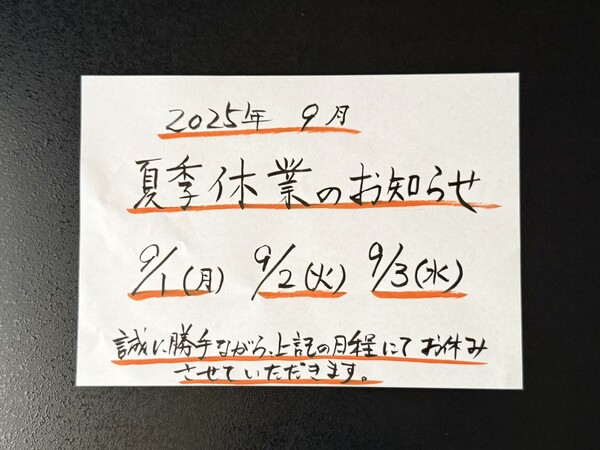 2025年 9月
夏季休業のお知らせ
9/1(月) 9/2(火) 9/3(水)
誠に勝手ながら、上記の日程にてお休み
させていただきます。